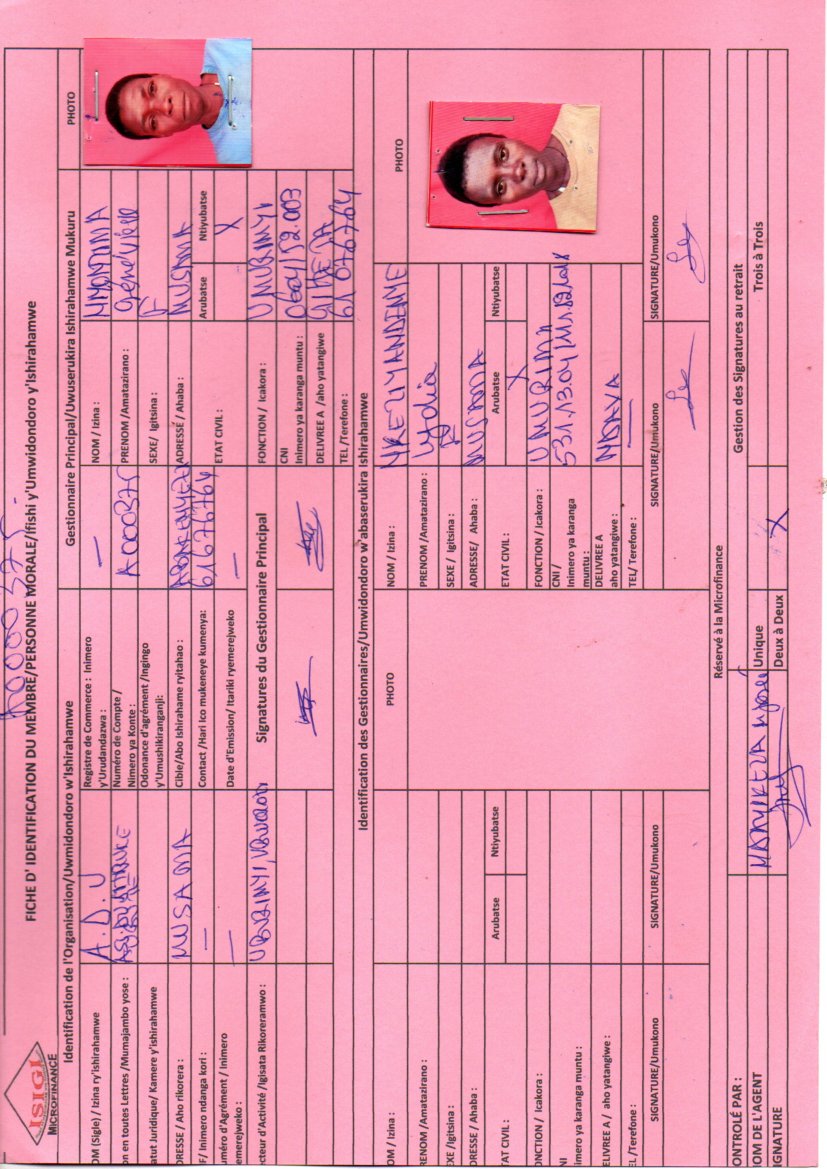 A000375-
ISIGI
MICROFINANCE
FICHE D' IDENTIFICATION DU MEMBRE/PERSONNE MORALE/Ifishi y'Umwidondoro y'Ishirahamwe
Identification de l'Organisation/Uwmidondoro w'Ishirahamwe
OM (Sigle) / Izina ry'ishirahamwe
A.D.U
on en toutes Lettres /Mumajambo yose :
atut Juridique/ Kamere y'ishirahamwe
DRESSE / Aho rikorera :
MUSAMA
F/ Inimero ndanga kori :
—
uméro d'Agrément / Inimero
emerejweko :
—
cteur d'Activité /Igisata Rikoreramwo :
UBURIMYI, UBWOROZI
Registre de Commerce : Inimero
y'Urudandazwa :
—
Numéro de Compte /
Nimero ya Konte :
A000375
Odonance d'agrément /Ingingo
y'Umushikiranganji:
Cible/Abo Ishirahame ryitahao :
Contact /Hari Ico mukeneye kumenya:
61676764
Date d'Emission/ Itariki ryemerejweko
—
Signatures du Gestionnaire Principal
Gestionnaire Principal/Uwuserukira Ishirahamwe Mukuru
PHOTO
NOM / Izina :
PRENOM /Amatazirano :
SEXE/ Igitsina :
F
ADRESSE / Ahaba :
MUSAMA
ETAT CIVIL :
Arubatse
Ntiyubatse
X
FONCTION / Icakora :
UMURIMYI
CNI
Inimero ya karanga muntu :
0604/152.003
DELIVREE A /aho yatangiwe
GITEGA
TEL /Terefone :
61076764
Identification des Gestionnaires/Umwidondoro w'abaserukira Ishirahamwe
OM / Izina :
PHOTO
RENOM /Amatazirano :
EXE /Igitsina :
DRESSE / Ahaba :
TAT CIVIL :
Arubatse
Ntiyubatse
ONCTION / Icakora :
NI
imero ya karanga muntu :
ELIVREE A / aho yatangiwe :
L /Terefone :
SIGNATURE/Umukono
SIGNATURE/Umukono
NOM / Izina :
NKEZIYANDENYE
PHOTO
PRENOM /Amatazirano :
Lydia
SEXE / Igitsina :
F
ADRESSE/ Ahaba :
MUSAMA
ETAT CIVIL :
Arubatse
Ntiyubatse
X
FONCTION / Icakora :
CNI /
Inimero ya karanga
muntu :
DELIVREE A
aho yatangiwe :
NDAVA
TEL/ Terefone :
—
SIGNATURE/Umukono
SIGNATURE/Umukono
Réservé à la Microfinance
ONTROLÉ PAR :
Gestion des Signatures au retrait
OM DE L'AGENT
Unique
Trois à Trois
IGNATURE
Deux à Deux
X